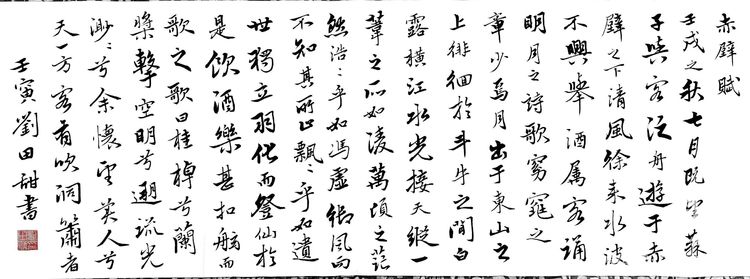 赤壁賦
壬戌之秋七月既望蘇
子與客泛舟遊于赤
壁之下清風徐来水波
不興舉酒属客誦
明月之詩歌窈窕之
章少焉月出于東山之
上徘徊於斗牛之間白
露橫江水光接天縱一
葦之所如凌萬頃之茫
然浩〻乎如馮虛御風而
不知其所止飄〻乎如遺
世獨立羽化而登仙於
是飲酒樂甚扣舷而
歌之歌曰桂棹兮蘭
槳擊空明兮遡流光
渺〻兮余懷望美人兮
天一方客有吹洞簫者
壬寅劉田甜書